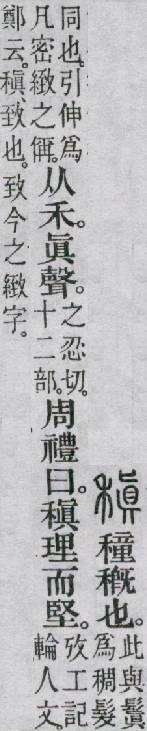 稹穜穊也。此與鬒爲稠髮
同也。引伸爲凡密緻之偁。从禾。眞聲。之忍切。十二部。周禮曰。稹理而堅。攷工記輪人文。
鄭云。稹、致也。致今之緻字。